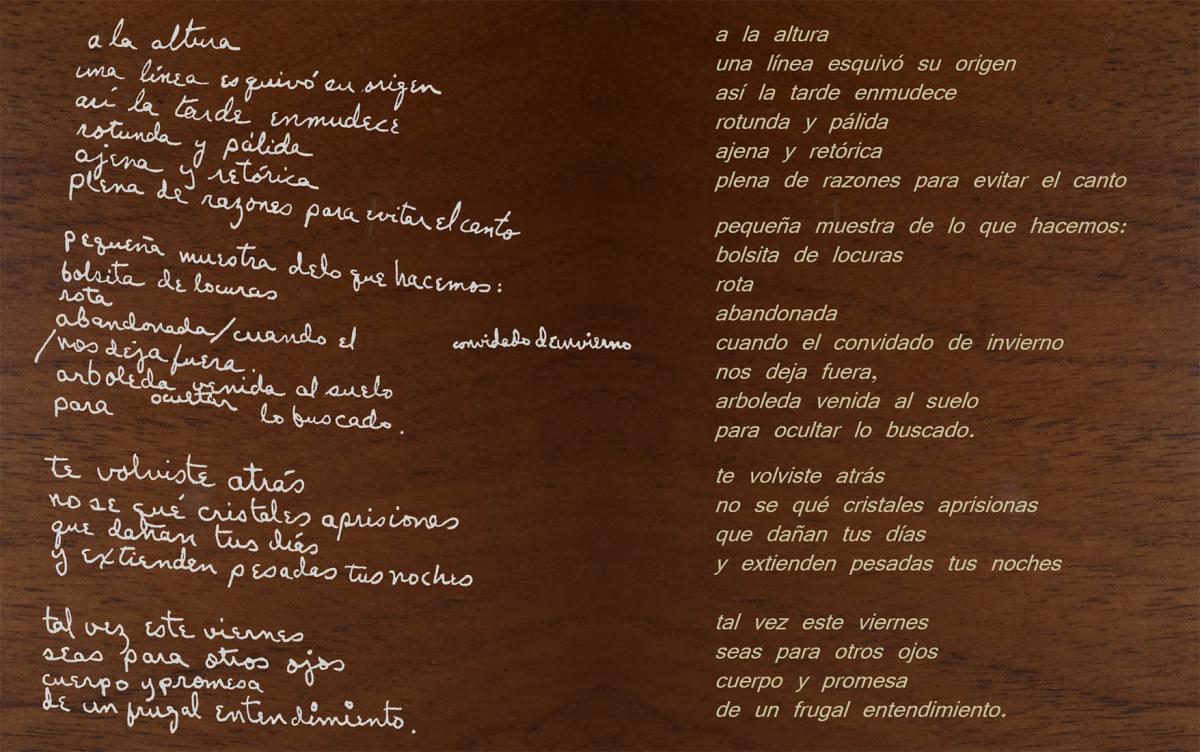 a la altura
una línea esquivó su origen
así la tarde enmudece
rotunda y pálida
ajena y retórica
plena de razones para evitar el canto
pequeña muestra de lo que hacemos:
bolsita de locuras
rota
abandonada/cuando el convidado de invierno
/nos deja fuera.
arboleda venida al suelo
para ocultar lo buscado.
te volviste atrás
no se qué cristales aprisionas
que dañan tus días
y extienden pesadas tus noches
tal vez este viernes
seas para otros ojos
cuerpo y promesa
de un frugal entendimiento.
a la altura
una línea esquivó su origen
así la tarde enmudece
rotunda y pálida
ajena y retórica
plena de razones para evitar el canto
pequeña muestra de lo que hacemos:
bolsita de locuras
rota
abandonada
cuando el convidado de invierno
nos deja fuera,
arboleda venida al suelo
para ocultar lo buscado.
te volviste atrás
no se qué cristales aprisionas
que dañan tus días
y extienden pesadas tus noches
tal vez este viernes
seas para otros ojos
cuerpo y promesa
de un frugal entendimiento.